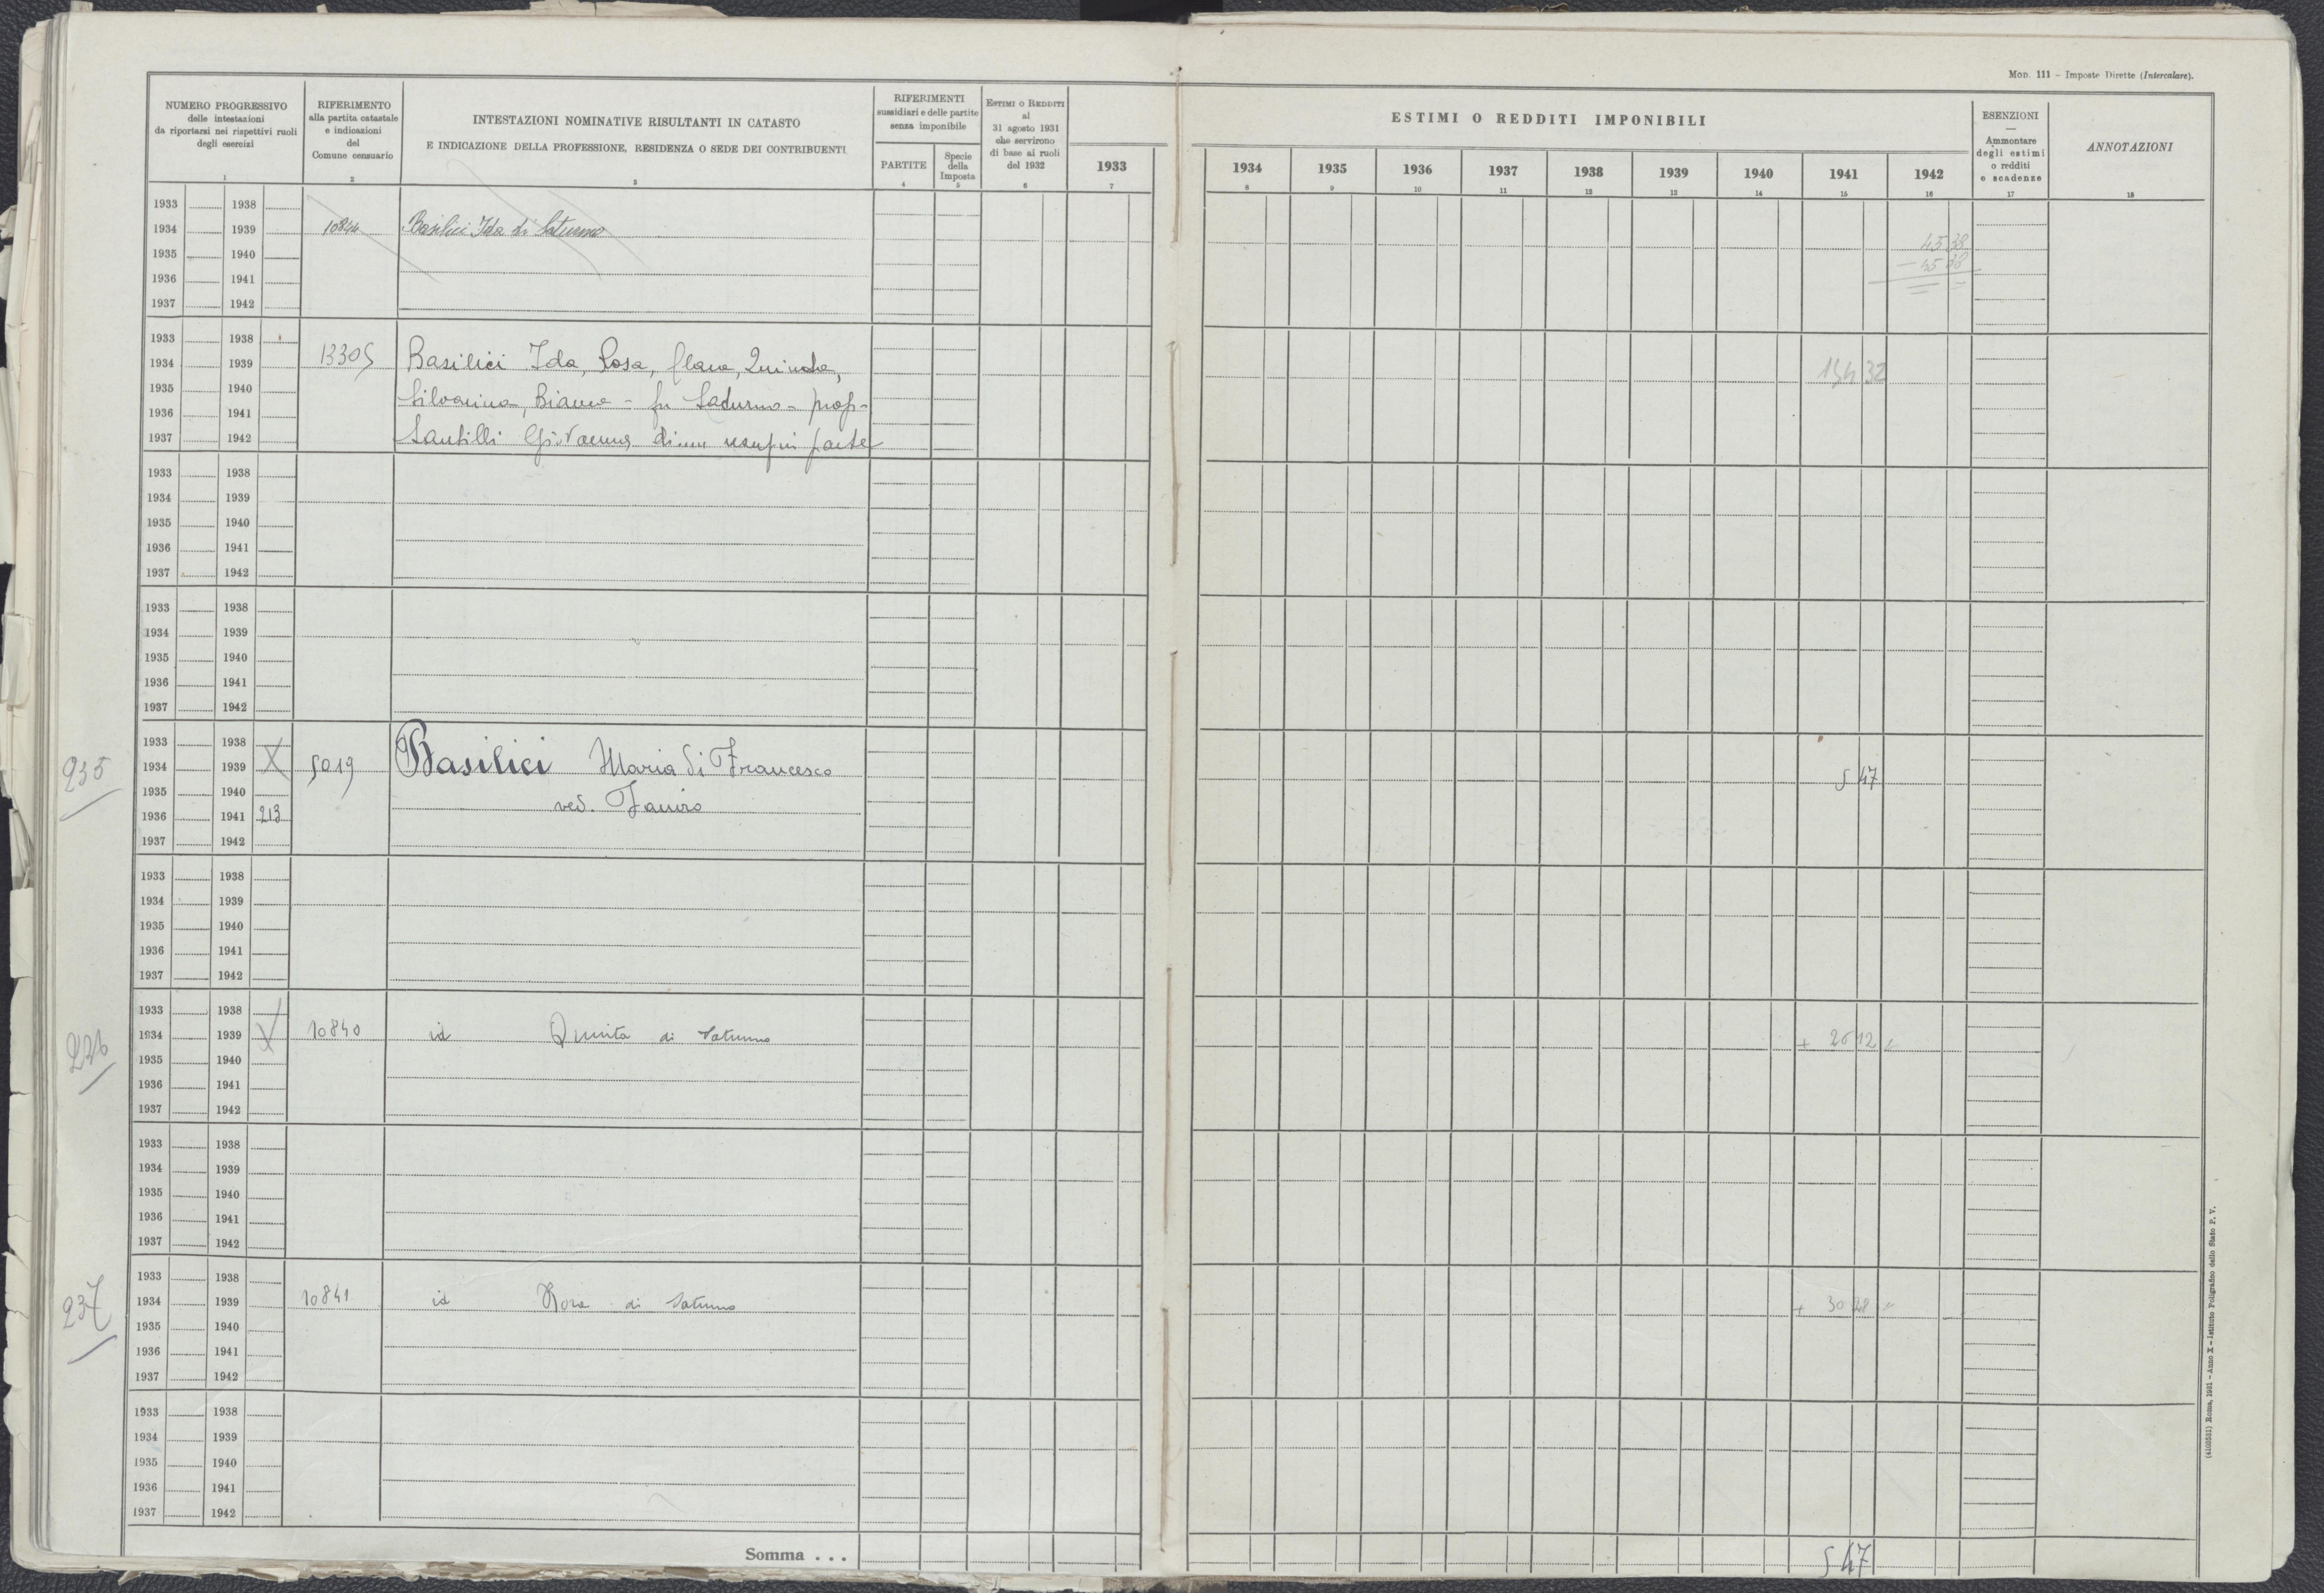 Mod. 111 - Imposte Dirette (Intercalare).
NUMERO PROGRESSIVO
delle intestazioni
da riportarsi nei rispettivi ruoli
degli esercizi
1
RIFERIMENTO
alla partita catastale
e indicazioni
del
Comune censuario
2
INTESTAZIONI NOMINATIVE RISULTANTI IN CATASTO
E INDICAZIONE DELLA PROFESSIONE, RESIDENZA O SEDE DEI CONTRIBUENTI
3
RIFERIMENTI
sussidiari e delle partite
senza imponibile
PARTITE
4
Specie
della
Imposta
5
ESTIMI O REDDITI
al
31 agosto 1931
che servirono
di base ai ruoli
del 1932
6
ESTIMI O REDDITI IMPONIBILI
1933 1934 1935 1936 1937 1938 1939 1940 1941 1942
7 8 9 10 11 12 13 14 15 16
ESENZIONI
—
Ammontare
degli estimi
o redditi
e scadenze
17
ANNOTAZIONI
18
1933 1938
1934 1939 10844 Basilici Ida di Saturno 45 38
1935 1940 - 45 38
1936 1941
1937 1942
1933 1938
1934 1939 13305 Basilici Ida, Rosa, Clara, Quinta, 134 32
1935 1940
1936 1941 Silvanina, Bianca - fu Saturno - prop-
1937 1942 Santilli Giovanna
1933 1938
1934 1939
1935 1940
1936 1941
1937 1942
1933 1938
1934 1939
1935 1940
1936 1941
1937 1942
1933 1938
235 1934 1939 X 5019 Basilici Maria di Francesco 5 47
1935 1940 ved.
1936 1941 213
1937 1942
1933 1938
1934 1939
1935 1940
1936 1941
1937 1942
1933 1938
236 1934 1939 X 10840 id Quinta di Saturno + 26 12
1935 1940
1936 1941
1937 1942
1933 1938
1934 1939
1935 1940
1936 1941
1937 1942
1933 1938
237 1934 1939 10841 id Rosa di Saturno + 30 28 "
1935 1940
1936 1941
1937 1942
1933 1938
1934 1939
1935 1940
1936 1941
1937 1942
Somma . . . 5 47
(4103531) Roma, 1931 - Anno X - Istituto Poligrafico dello Stato P. V.